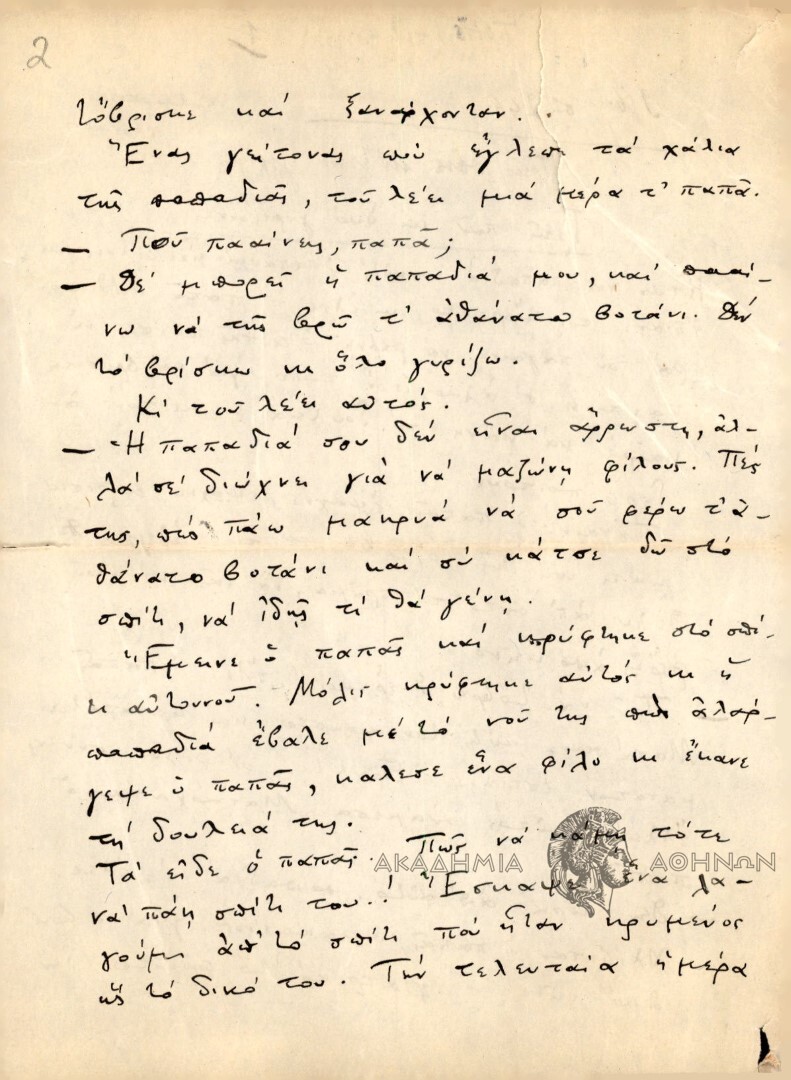 2
τὄβρισκε καί ξαναρχονταν..
Ἕνας γείτονας πού ἔγλεπε τά χάλια
τῆς παπαδιᾶς, τοῦ λέει μιά μέρα τ' παπᾶ.
— Ποῦ πααίνεις, παπᾶ;
— Δέ μπορεῖ ἡ παπαδιά μου, καί πααί-
νω νά τῆς βρῶ τ' ἀθάνατο βοτάνι. Δέν
τό βρίσκω κι ὅλο γυρίζω.
Κί τοῦ λέει αὐτός.
— Ἡ παπαδιά σου δέν εἶναι ἄρρωστη, ἀλ-
λά σέ διώχνει γιὰ νά μαζώνῃ φίλους. Πές
της, πώς πάω μακρυά νά σοῦ φέρω τ' ἀ-
θάνατο βοτάνι καί σύ κάτσε δῶ στό
σπίτι, νά ἰδῇς τί θά γένῃ.
Ἔμεινε ὁ παπᾶς καί κρύφτηκε στό σπί-
τι αὐτουνοῦ. Μόλις κρύφτηκε αὐτός κι ἡ
παπαδιά ἔβαλε μέ τό νοῦ της πώς ἀλάρ-
γεψε ὁ παπᾶς, κάλεσε ἕνα φίλο κι ἔκανε
τή δουλειά της.
Τά εἶδε ὁ παπᾶς. Πῶς νά κάμῃ τότε
νά πάῃ σπίτι του..! Ἔσκαψε ἕνα λα-
γούμι ἀπ' τό σπίτι πού ἦταν κρυμένος
ὥς τό δικό του. Τήν τελευταία ἡμέρα
ΑΚΑΔΗΜΙΑ ΑΘΗΝΩΝ